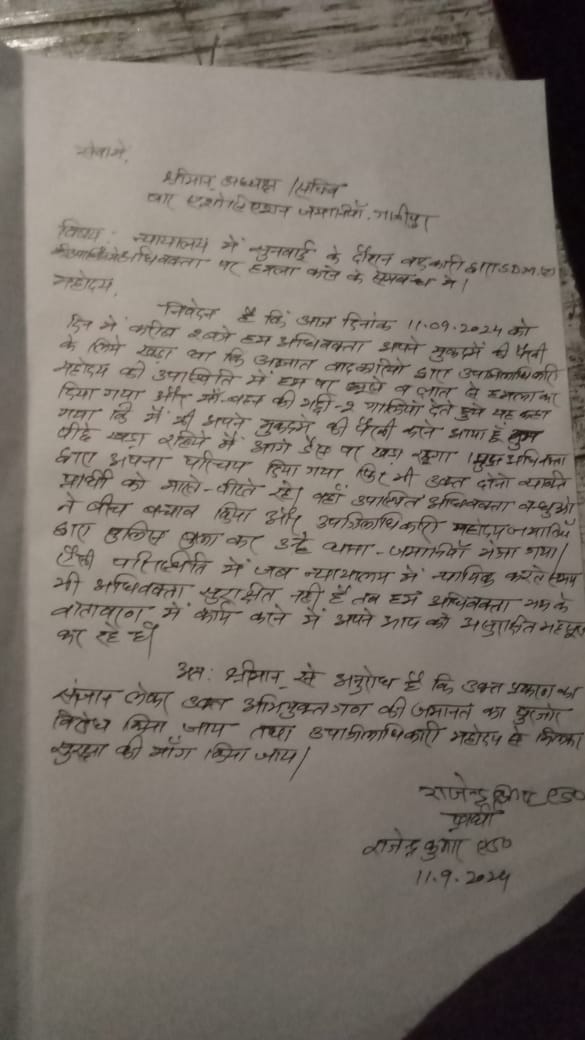 सेवामें,
श्रीमान् अध्यक्ष / सचिव
बार एशोसिएशन जमानियाँ, गाजीपुर
विषय: न्यायालय में सुनवाई के दौरान वादकारी द्वारा S.D.M.
की उपस्थिति में अधिवक्ता पर हमला करने के सम्बन्ध में।
महोदय,
निवेदन है कि आज दिनांक 11.09.2024 को
दिन में करीब 2 बजे हम अधिवक्ता अपने मुकदमें की पैरवी
के लिये खड़ा था कि अज्ञात वादकारियों द्वारा उपजिलाधिकारी
महोदय की उपस्थिति में हम पर व लात से हमला कर
दिया गया और माँ-बहन की गद्दी-2 गालियाँ देते हुये यह कहा
गया कि मैं भी अपने मुकदमें की पैरवी करने आया हूँ तुम
पीछे खड़ा रहो मैं आगे डैस पर खड़ा रहूगा। मुझ अधिवक्ता
द्वारा अपना परिचय दिया गया फिर भी उक्त दोनो व्यक्ति
प्रार्थी को मारते-पीटते रहे। वहाँ उपस्थित अधिवक्ता बन्धुओं
ने बीच बचाव किया और उपजिलाधिकारी महोदय जमानियाँ
द्वारा पुलिस बुला कर उन्हे थाना-जमानियाँ भेजा गया।
ऐसी परिस्थिति में जब न्यायालय में न्यायिक करते समय
भी अधिवक्ता सुरक्षित नही है तब हम अधिवक्ता भय के
वातावरण में कार्य करने में अपने आप को असुरक्षित महसूस
कर रहे है।
अत: श्रीमान् से अनुरोध है कि उक्त प्रकरण का
संज्ञान लेकर उक्त अभियुक्तगण की जमानत का पुरजोर
विरोध किया जाय तथा उपजिलाधिकारी महोदय से
सुरक्षा की माँग किया जाय।
राजेन्द्र कुमार एड०
प्रार्थी
राजेन्द्र कुमार एड०
11.9.2024